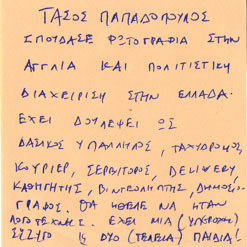 ΤΑΣΟΣ ΠΑΠΑΔΟΠΟΥΛΟΣ
ΣΠΟΥΔΑΣΕ ΦΩΤΟΓΡΑΦΙΑ ΣΤΗΝ
ΑΓΓΛΙΑ ΚΑΙ ΠΟΛΙΤΙΣΤΙΚΗ
ΔΙΑΧΕΙΡΙΣΗ ΣΤΗΝ ΕΛΛΑΔΑ.
ΕΧΕΙ ΔΟΥΛΕΨΕΙ ΩΣ
ΔΑΣΙΚΟΣ ΥΠΑΛΛΗΛΟΣ, ΤΑΧΥΔΡΟΜΟΣ,
ΚΟΥΡΙΕΡ, ΣΕΡΒΙΤΟΡΟΣ, DELIVERY,
ΚΑΘΗΓΗΤΗΣ, ΒΙΝΤΕΟΛΗΠΤΗΣ, ΔΗΜΟΣΙΟ-
ΓΡΑΦΟΣ. ΘΑ ΗΘΕΛΕ ΝΑ ΗΤΑΝ
ΛΟΓΟΤΕΧΝΗΣ. ΕΧΕΙ ΜΙΑ (ΥΠΕΡΟΧΗ)
ΣΥΖΥΓΟ & ΔΥΟ (ΤΕΛΕΙΑ) ΠΑΙΔΙΑ!